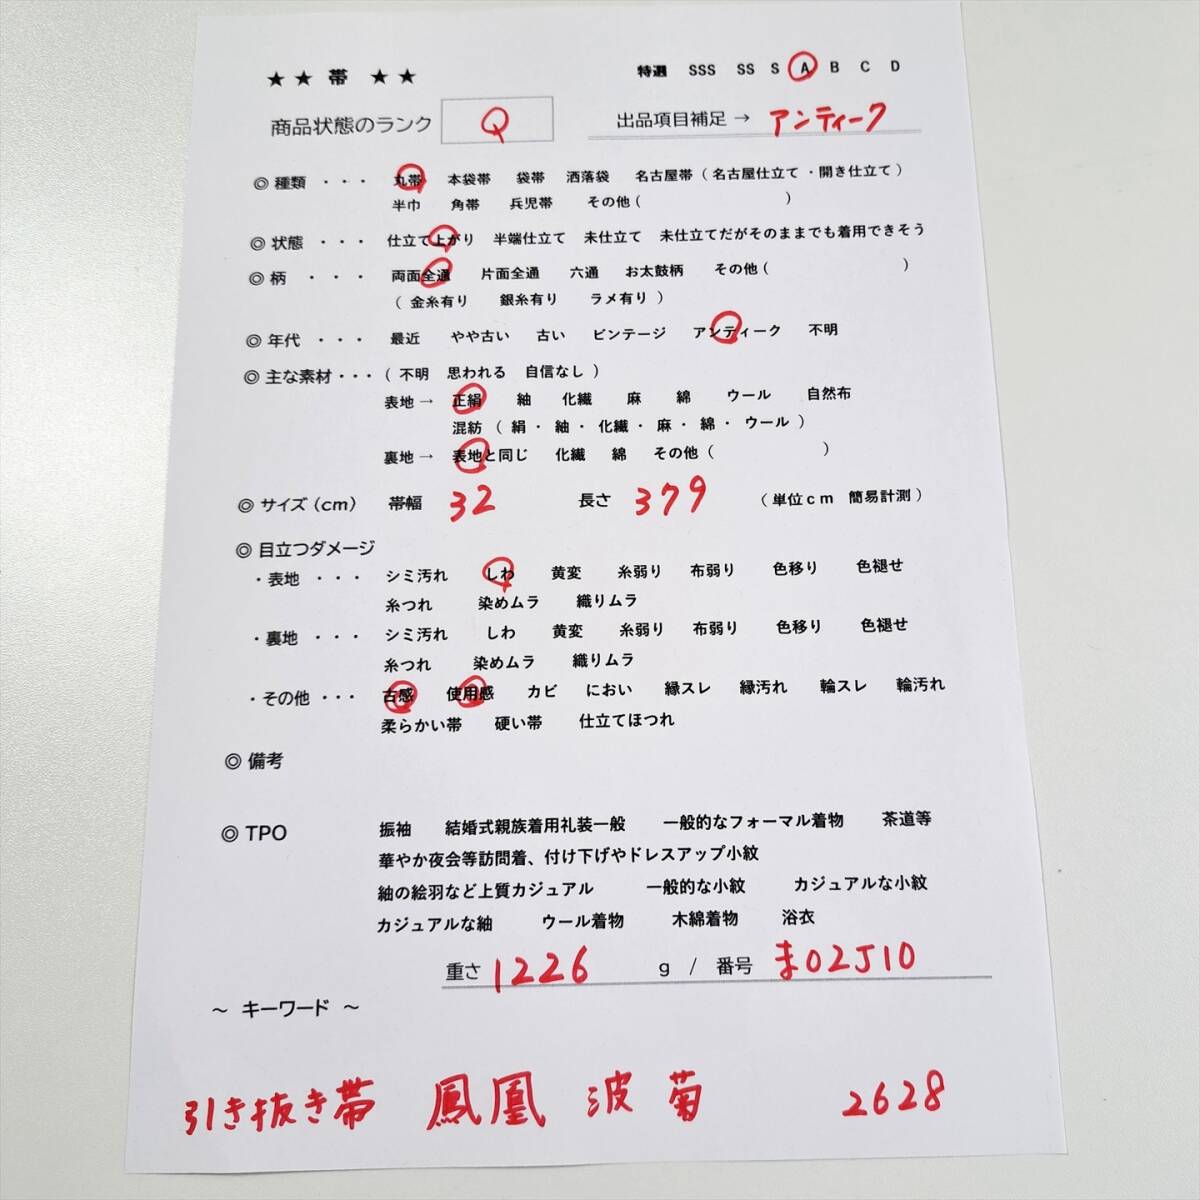 ★ ★ 帯 ★ ★
特選 SSS SS S A B C D
商品状態のランク Q 出品項目補足 → アンティーク
◎ 種類 ・・・ 丸帯 本袋帯 袋帯 洒落袋 名古屋帯 ( 名古屋仕立て ・開き仕立て )
半巾 角帯 兵児帯 その他 ( )
◎ 状態 ・・・ 仕立て上がり 半端仕立て 未仕立て 未仕立てだがそのままでも着用できそう
◎ 柄 ・・・ 両面全通 片面全通 六通 お太鼓柄 その他 ( )
( 金糸有り 銀糸有り ラメ有り )
◎ 年代 ・・・ 最近 やや古い 古い ビンテージ アンティーク 不明
◎ 主な素材・・・ ( 不明 思われる 自信なし )
表地 → 正絹 紬 化繊 麻 綿 ウール 自然布
混紡 ( 絹・ 紬・ 化繊・ 麻・ 綿・ ウール )
裏地 → 表地と同じ 化繊 綿 その他 ( )
◎ サイズ (cm) 帯幅 32 長さ 379 ( 単位cm 簡易計測 )
◎ 目立つダメージ
・表地 ・・・ シミ汚れ しわ 黄変 糸弱り 布弱り 色移り 色褪せ
糸つれ 染めムラ 織りムラ
・裏地 ・・・ シミ汚れ しわ 黄変 糸弱り 布弱り 色移り 色褪せ
糸つれ 染めムラ 織りムラ
・その他 ・・・ 古感 使用感 カビ におい 縁スレ 縁汚れ 輪スレ 輪汚れ
柔らかい帯 硬い帯 仕立てほつれ
◎ 備考
◎ TPO 振袖 結婚式親族着用礼装一般 一般的なフォーマル着物 茶道等
華やか夜会等訪問着、付け下げやドレスアップ小紋
紬の絵羽など上質カジュアル 一般的な小紋 カジュアルな小紋
カジュアルな紬 ウール着物 木綿着物 浴衣
重さ 1226 g / 番号 ま02J10
～ キーワード ～
引き抜き帯 鳳凰 波 菊 2628